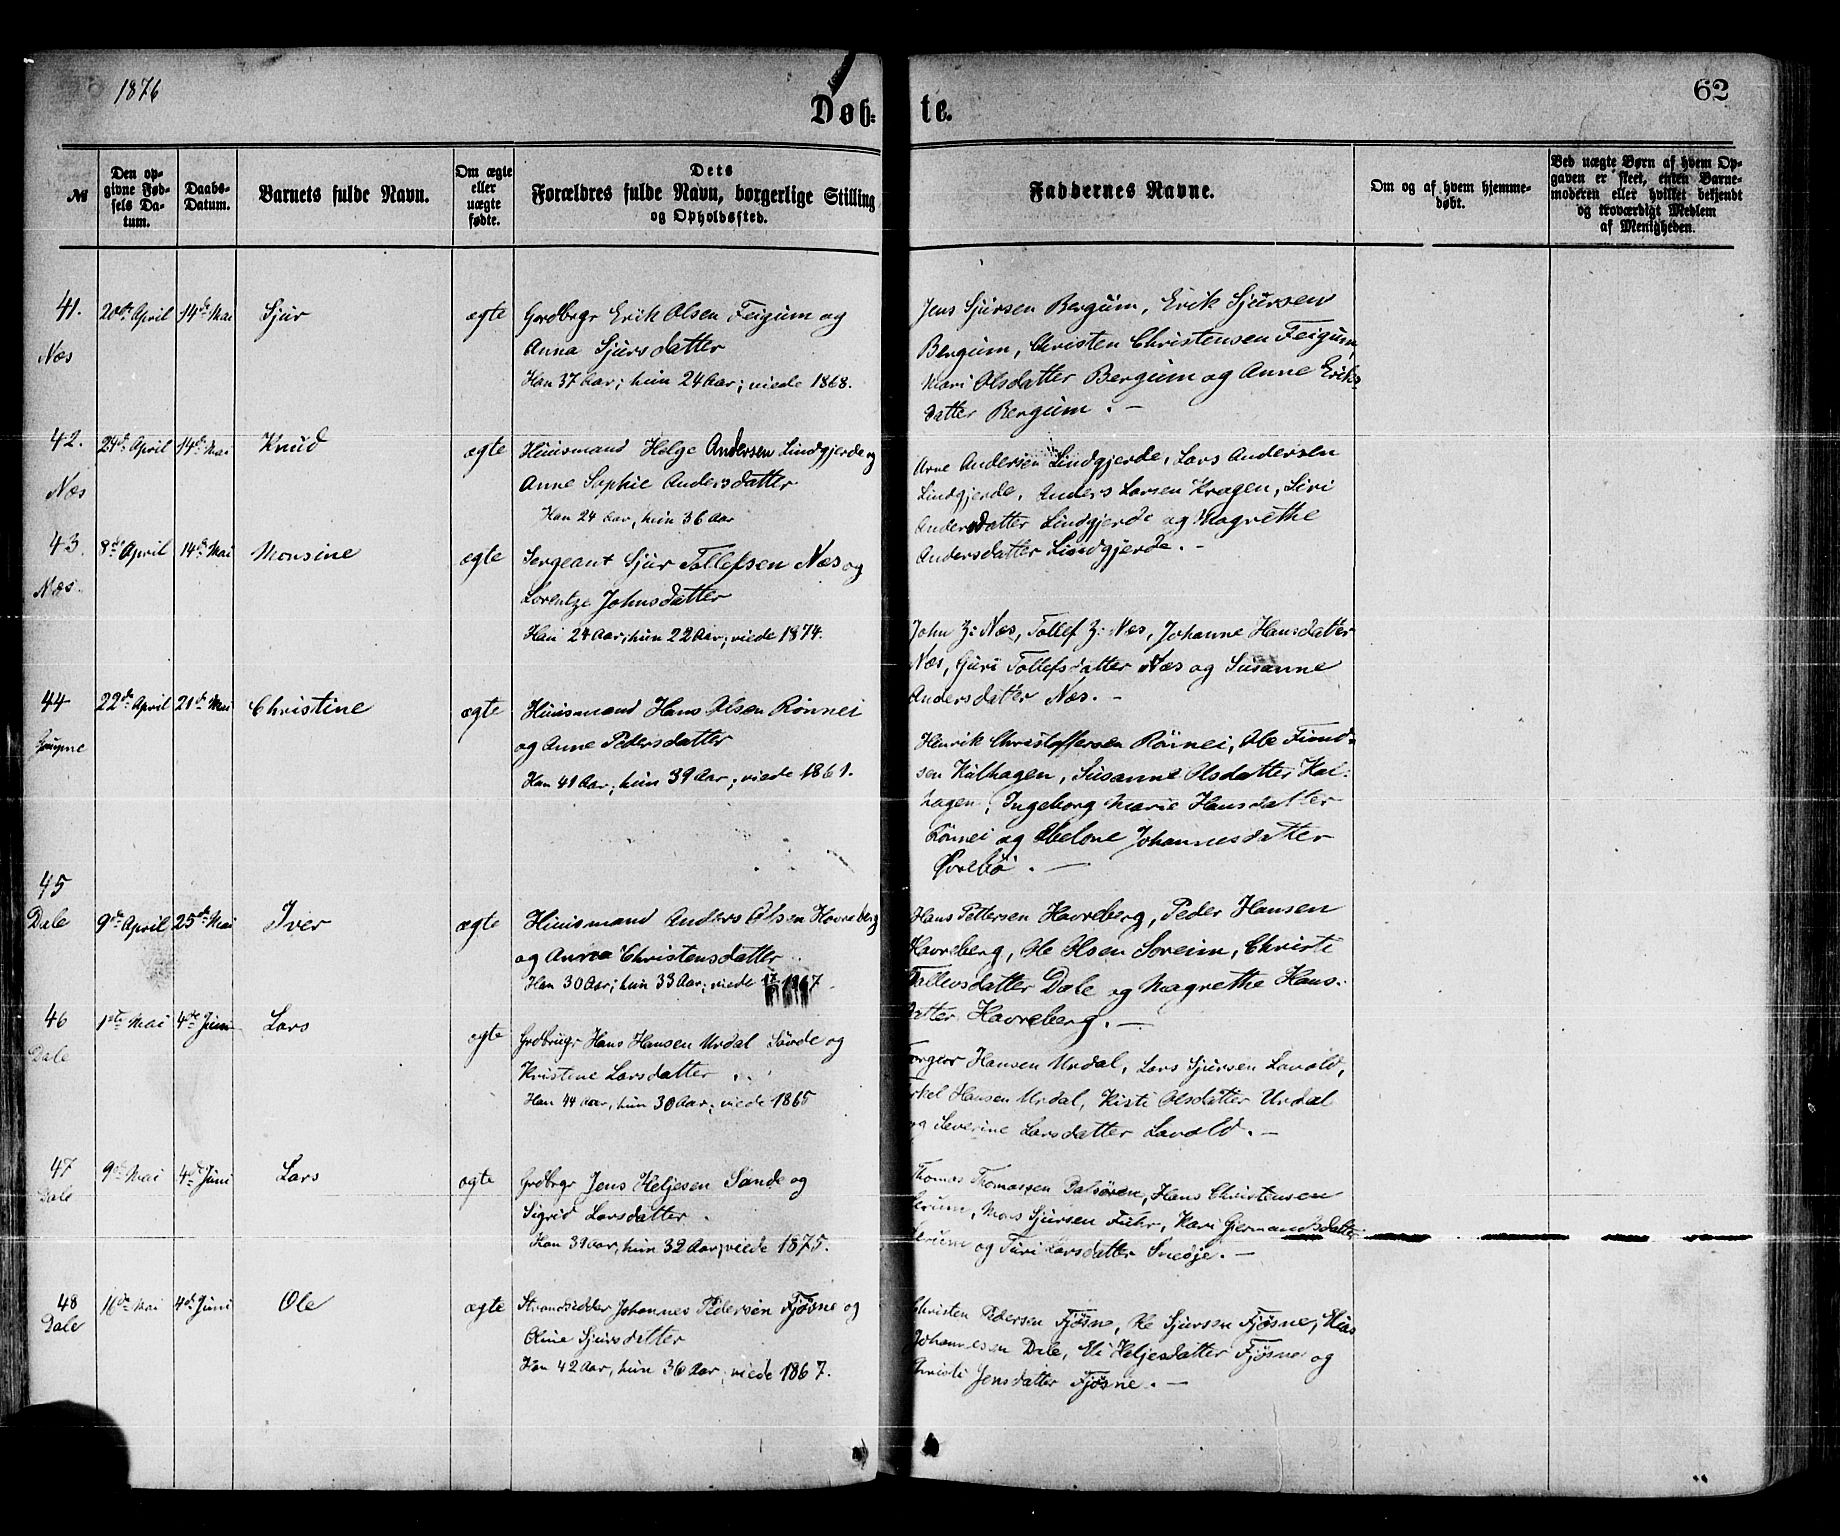 1876
62
Døb-
te.
№
Den op-
givne Fød-
sels Da-
tum.
Daabs-
Datum.
Barnets fulde Navn.
Om ægte
eller
uægte
fødte.
Dets
Forældres fulde Navn, borgerlige Stilling
og Opholdssted.
Faddernes Navne.
Om og af hvem hjemme-
døbt.
Ved uægte Børn af hvem Op-
gaven er skeet, enten Barne-
moderen eller hvilket bekjendt
og troværdigt Medlem
af Menigheden.
41. 20de April 14de Mai Sjur ægte Gordbrgr Erik Olsen Feigum og
Næs Anna Sjursdatter
Han 37 Aar; hun 24 Aar; viede 1868.
Jens Sjursen Bergum, Erik Sjursen
Bergum, Christen Christensen Feigum,
Kari Olsdatter Bergum og Anne Eriks-
datter Bergum. -
42. 24de April 14de Mai Knud ægte Huusmand Helge Andersen Lindgjerde og
Næs Anne Sophie Andersdatter
Han 24 Aar, hun 36 Aar
Arne Andersen Lindgjerde, Lars Andersen
Lindgjerde, Anders Larsen Kragen, Siri
Andersdatter Lindgjerde og Magrethe
Andersdatter Lindgjerde. -
43. 8de April 14de Mai Monsine ægte Sergeant Sjur Tollefsen Næs og
Næs. Lorentze Johnsdatter
Han 24 Aar; hun 22 Aar; viede 1874.
John Z: Næs, Tollef Z: Næs, Johanne Hansdatter
Næs, Guri Tollefsdatter Næs og Susanne
Andersdatter Næs. -
44 22de April 21de Mai Christine ægte Huusmand Hans Olsen Rønnei
Gaupne og Anne Pedersdatter
Han 41 Aar; hun 39 Aar; viede 1861.
Henrik Christoffersen Rønnei, Ole Fiend-
sen Kulhagen, Susanne Olsdatter Kul-
hagen, Ingeborg Marie Hansdatter
Rønnei og Abelone Johannesdatter
Øvrebø. -
45
Dale 9de April 25de Mai Iver ægte Huusmand Anders Olsen Havreberg
og Anna Christensdatter
Han 30 Aar; hun 33 Aar; viede 1867.
Hans Pettersen Havreberg, Peder Hansen
Havreberg, Ole Olsen Soreim, Christi
Tallevsdatter Dale og Magrethe Hans-
datter Havreberg. -
46 1ste Mai 4de Juni Lars ægte Grdbrugr Hans Hansen Urdal Sørde og
Dale Kristine Larsdatter
Han 44 Aar, hun 30 Aar; viede 1865
Hansen Urdal, Lars Sjursen Lavold,
Hansen Urdal, Kisti Olsdatter Urdal
og Severine Larsdatter Lavold. -
47 9de Mai 4de Juni Lars ægte Grdbrgr Jens Heljesen Sande og
Dale Sigrid Larsdatter.
Han 39 Aar, hun 32 Aar; viede 1875.
Thomas Thomassen Dalsøren, Hans Christensen
Mons Sjursen Fuhr, Kari Germandsdatter
og Turi Larsdatter Snedje. -
48 16de Mai 4de Juni Ole ægte Strandsidder Johannes Pedersen Fjøsne og
Dale Oline Sjursdatter
Han 42 Aar, hun 36 Aar, viede 1867.
Christen Pedersen Fjøsne, Ole Sjursen Fjøsne, Elias
Johannesen Dale, Eli Heljesdatter Fjøsne og
Christi Jensdatter Fjøsne. -